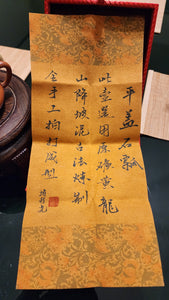 平盖石瓢
此壶选用库藏黄龙
山降坡泥古法炼制
全手工拍打成型